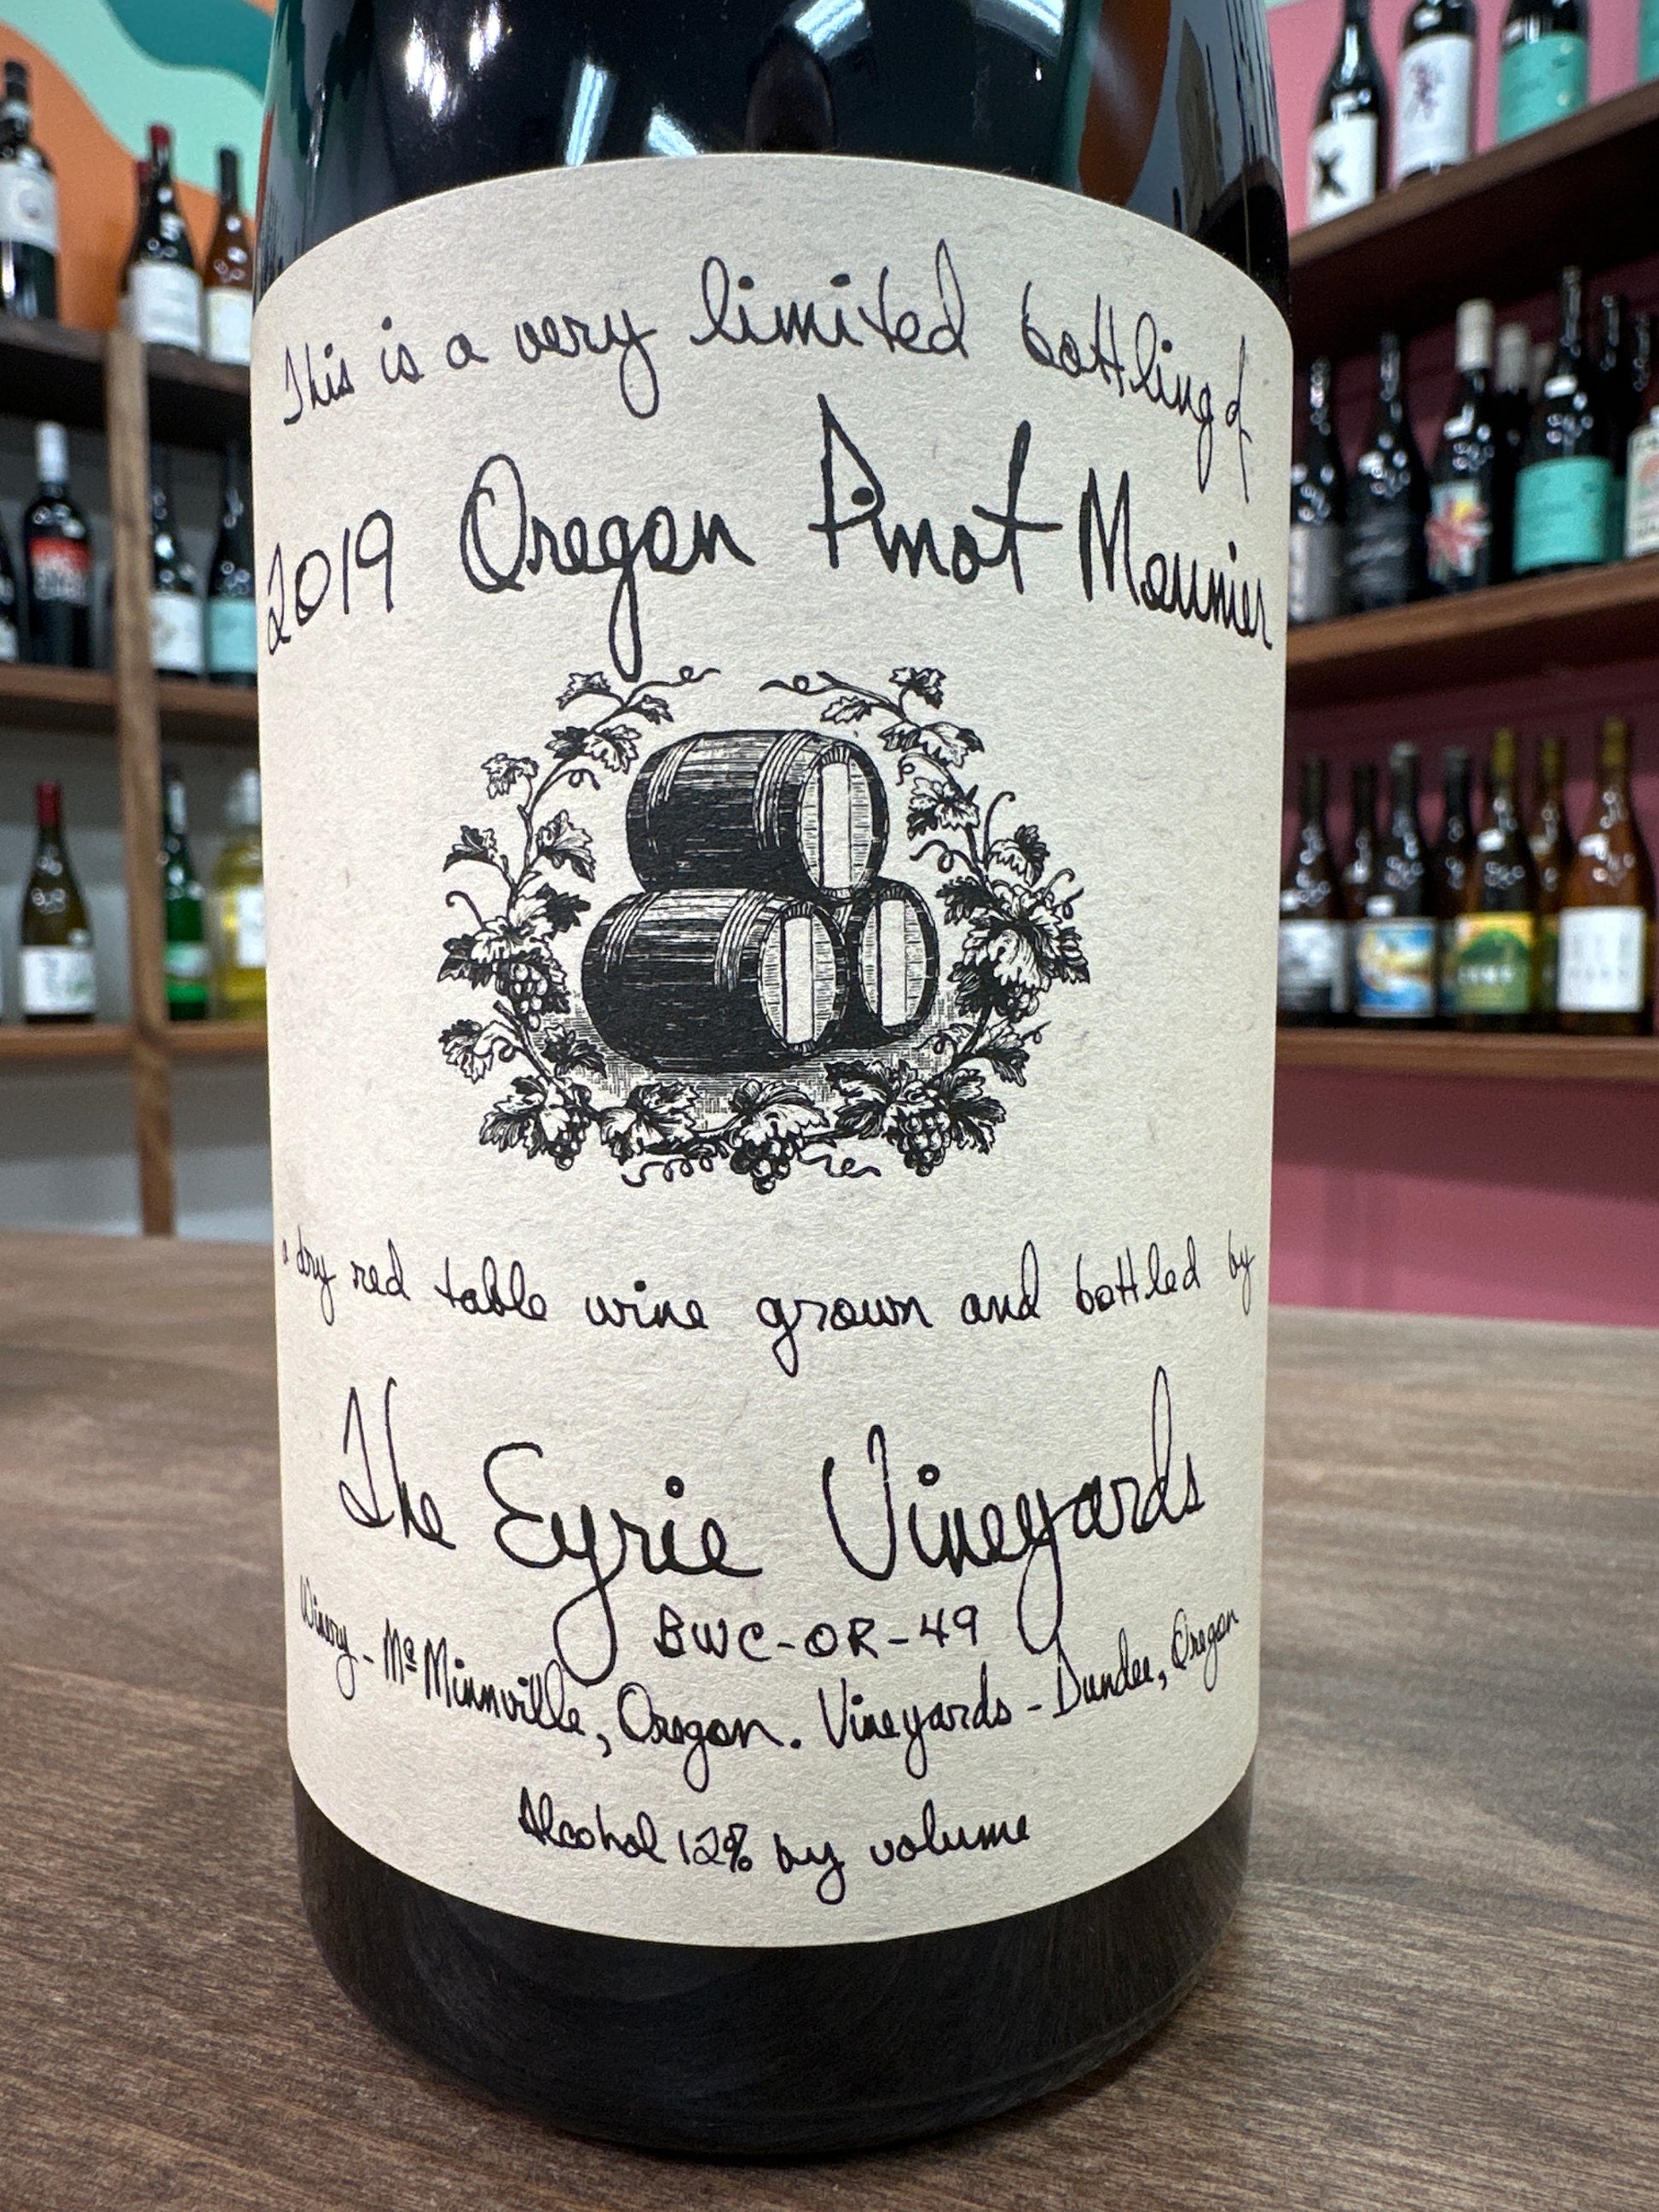 This is a very limited bottling of
2019 Oregon Pinot Meunier
a dry red table wine grown and bottled by
The Eyrie Vineyards
BWC-OR-49
Winery - McMinnville, Oregon. Vineyards - Dundee, Oregon
Alcohol 12% by volume